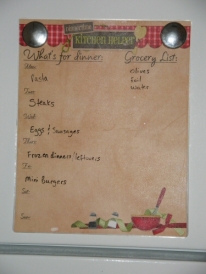 KITCHEN HELPER
What's for dinner: Grocery List:
Mon
Pasta
olives
foil
Tues
Steaks
Wed
Eggs & Sausages
Thurs
Frozen dinners/leftovers
Fri
Mini Burgers
Sat
Sun